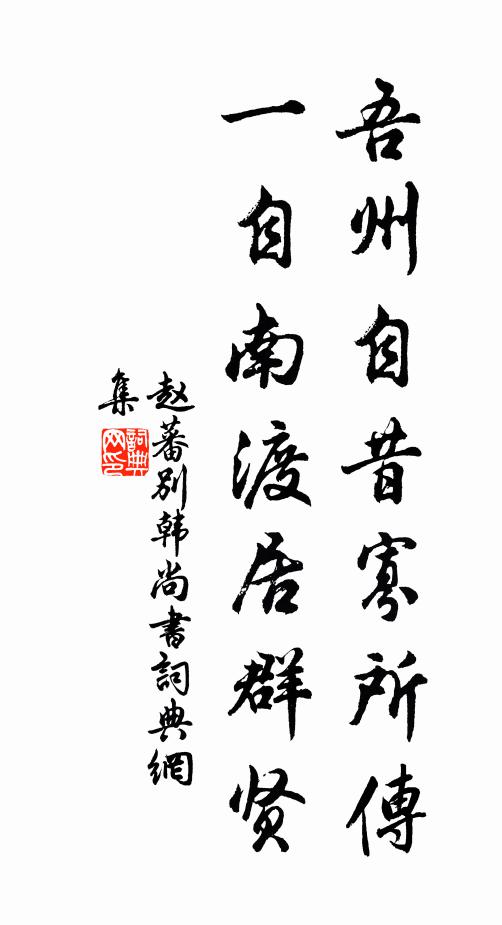 吾州自昔寡所傳
一自南渡居群贤
赵蕃别韩尚書詞典網
集
詞典网印